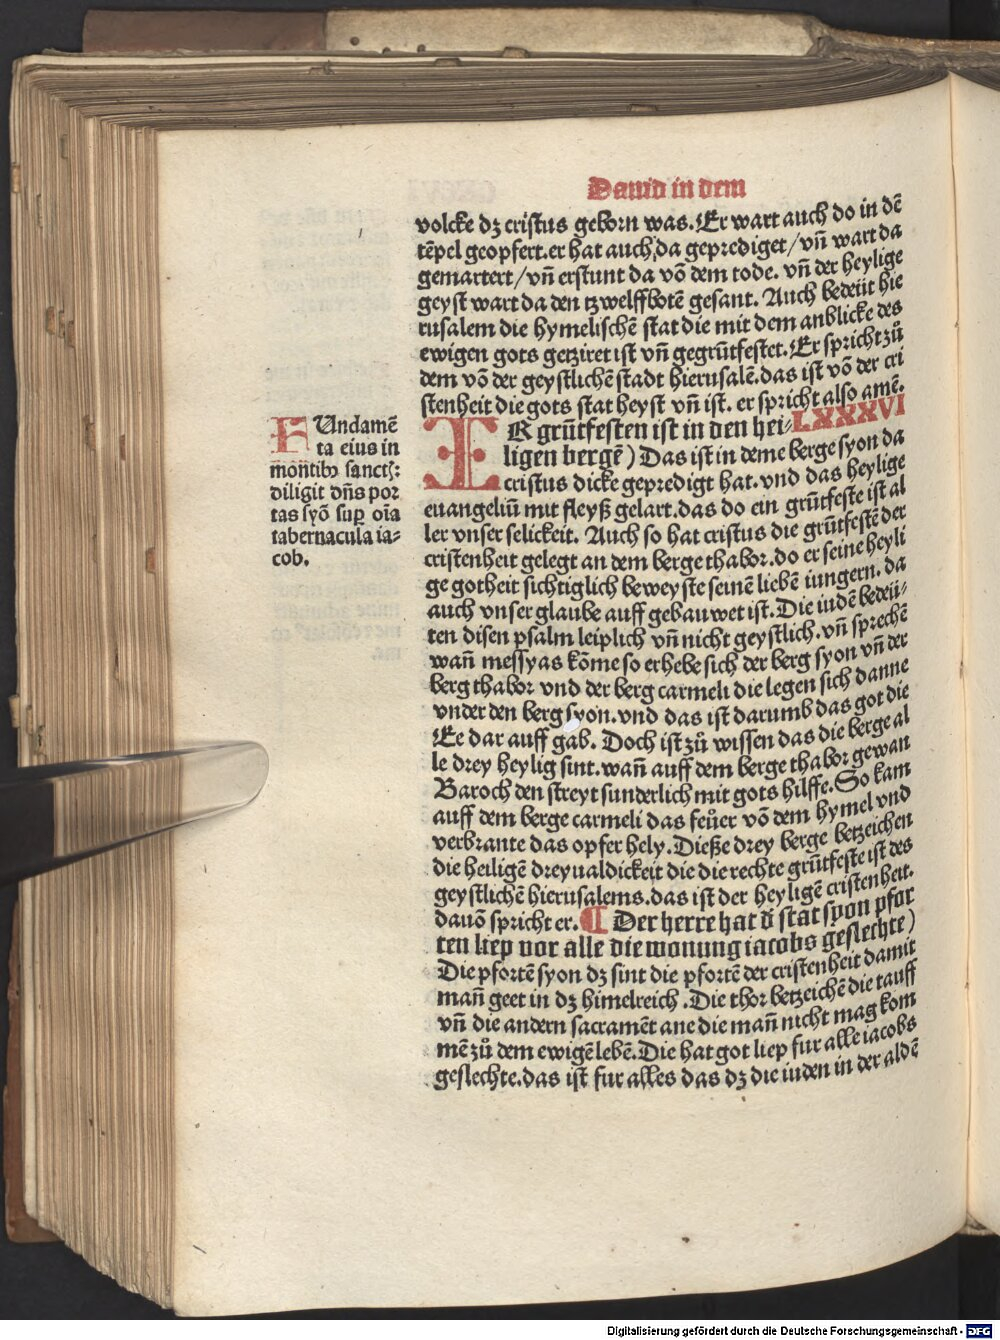 Dauid in dem
volcke dʒ cristus geborn was. Er wart auch do in dē
tēpel geopfert. er hat auch da geprediget / vn̄ wart da
gemartert / vn̄ erstunt da vō dem tode. vn̄ der heylige
geyst wart da den tzwelffbotē gesant. Auch bedeüt hie
rusalem die hymelischē stat die mit dem anblicke des
ewigen gots getziret ist vn̄ gegrūtfestet. Er spricht zů
dem vō der geystlichē stadt hierusalē. das ist vō der cri
stenheit die gots stat heyst vn̄ ist. er spricht also amē.
LXXXVI
FUndamē
ta eius in
montibꝰ sanctꝭ:
diligit dn̄s por
tas syō suꝑ oīa
tabernacula ia-
cob.
ER grūtfesten ist in den hei-
ligen bergē) Das ist in deme berge syon da
cristus dicke gepredigt hat. vnd das heylige
euangeliū mit fleyß gelart. das do ein grūtfeste ist al
ler vnser selickeit. Auch so hat cristus die grūtfestē der
cristenheit gelegt an dem berge thabor. do er seine heyli
ge gotheit sichtiglich beweyste seinē liebē iungern. da
auch vnser glaube auff gebauwet ist. Die iudē bedeü-
ten disen psalm leiplich vn̄ nicht geystlich. vn̄ sprechē
wan̄ messyas kōme so erhebe sich der berg syon vn̄ der
berg thabor vnd der berg carmeli die legen sich danne
vnder den berg syon. vnd das ist darumb das got die
Ee dar auff gab. Doch ist zů wissen das die berge al
le drey heylig sint. wan̄ auff dem berge thabor gewan
Baroch den streyt sunderlich mit gots hilffe. So kam
auff dem berge carmeli das feůer vō dem hymel vnd
verbrante das opfer hely. Dieße drey berge betzeichen
die heiligē dreyualdickeit die die rechte grūtfeste ist des
geystlichē hierusalems. das ist der heyligē cristenheit.
dauō spricht er. ¶ Der herre hat d̄ stat syon pfor
ten liep vor alle die wonung iacobs geslechte)
Die pfortē syon dʒ sint die pfortē der cristenheit damit
man̄ geet in dʒ himelreich. Die thor betzeichē die tauff
vn̄ die andern sacramēt ane die man̄ nicht mag kom
mē zů dem ewigē lebē. Die hat got liep fur alle iacobs
geslechte. das ist fur alles das dʒ die iuden in der aldē
Digitalisierung gefördert durch die Deutsche Forschungsgemeinschaft - DFG